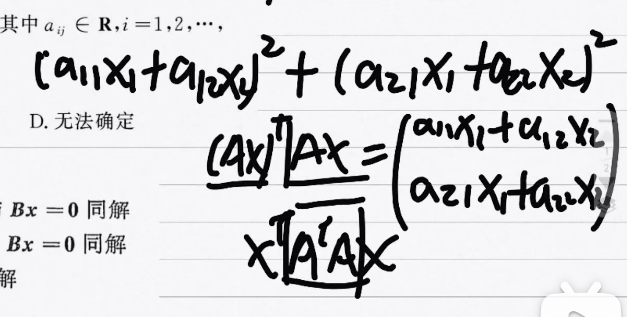 其中 aᵢⱼ ∈ R, i = 1, 2, ⋯,
(a₁₁x₁+a₁₂x₂)² + (a₂₁x₁+a₂₂x₂)²
D. 无法确定
(Ax)ᵀAx = (a₁₁x₁+a₁₂x₂
a₂₁x₁+a₂₂x₂)
Bx = 0 同解
xᵀAᵀAx
Bx = 0 同解
解